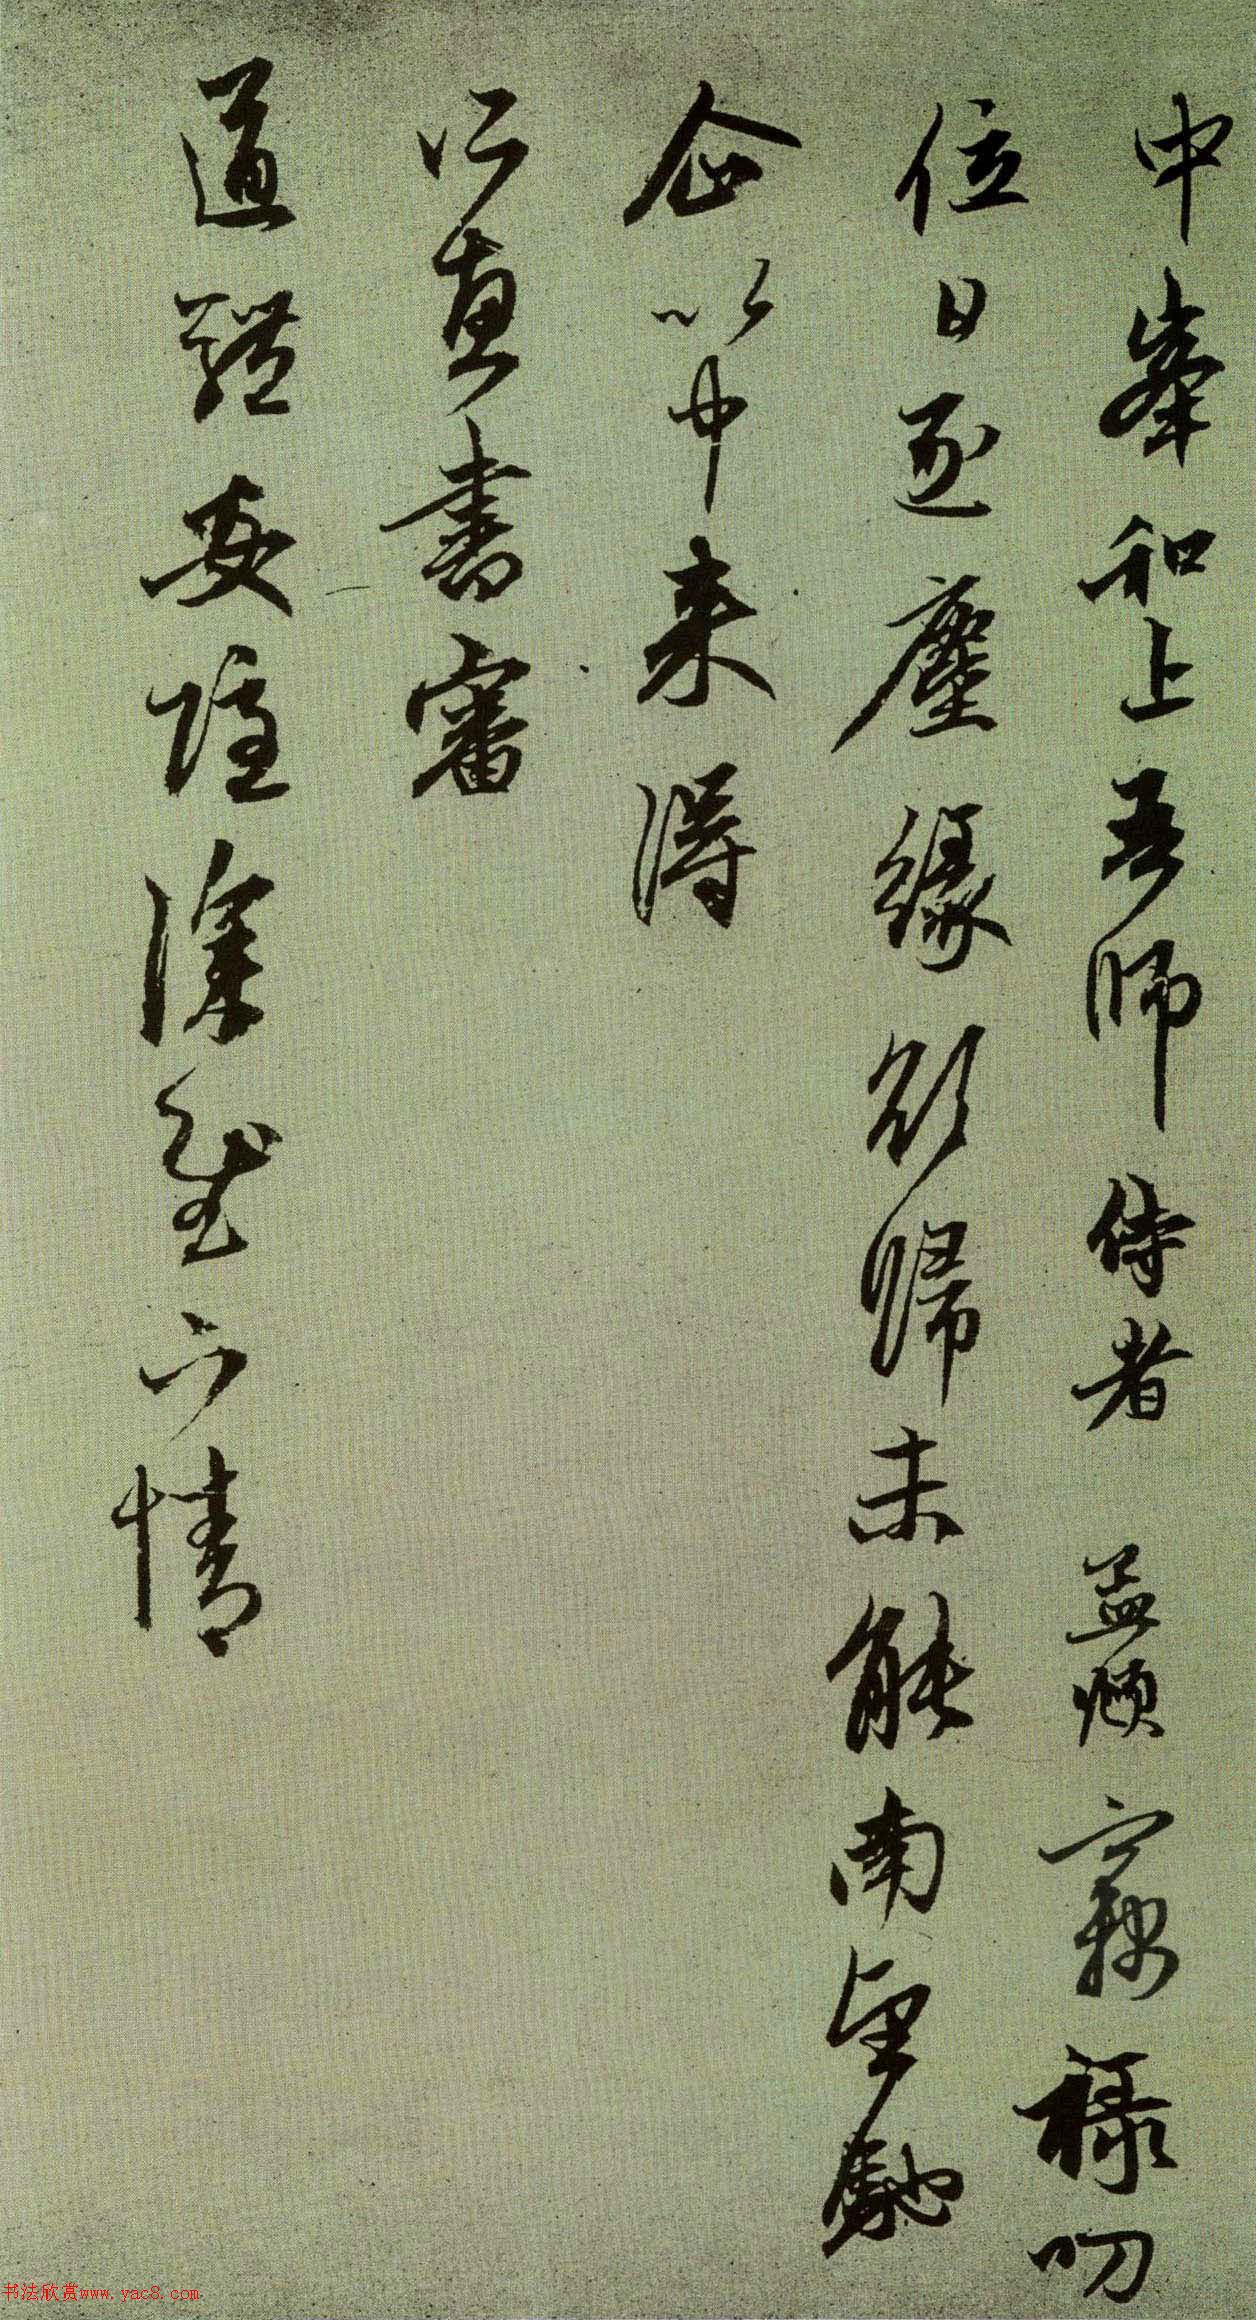 中峯和上吾師侍者孟頫竊祿叨
位日逐塵緣欲歸未能南望馳
企以中来得
所惠書審
道體安隱深慰下情
书法欣赏www.yac8.com